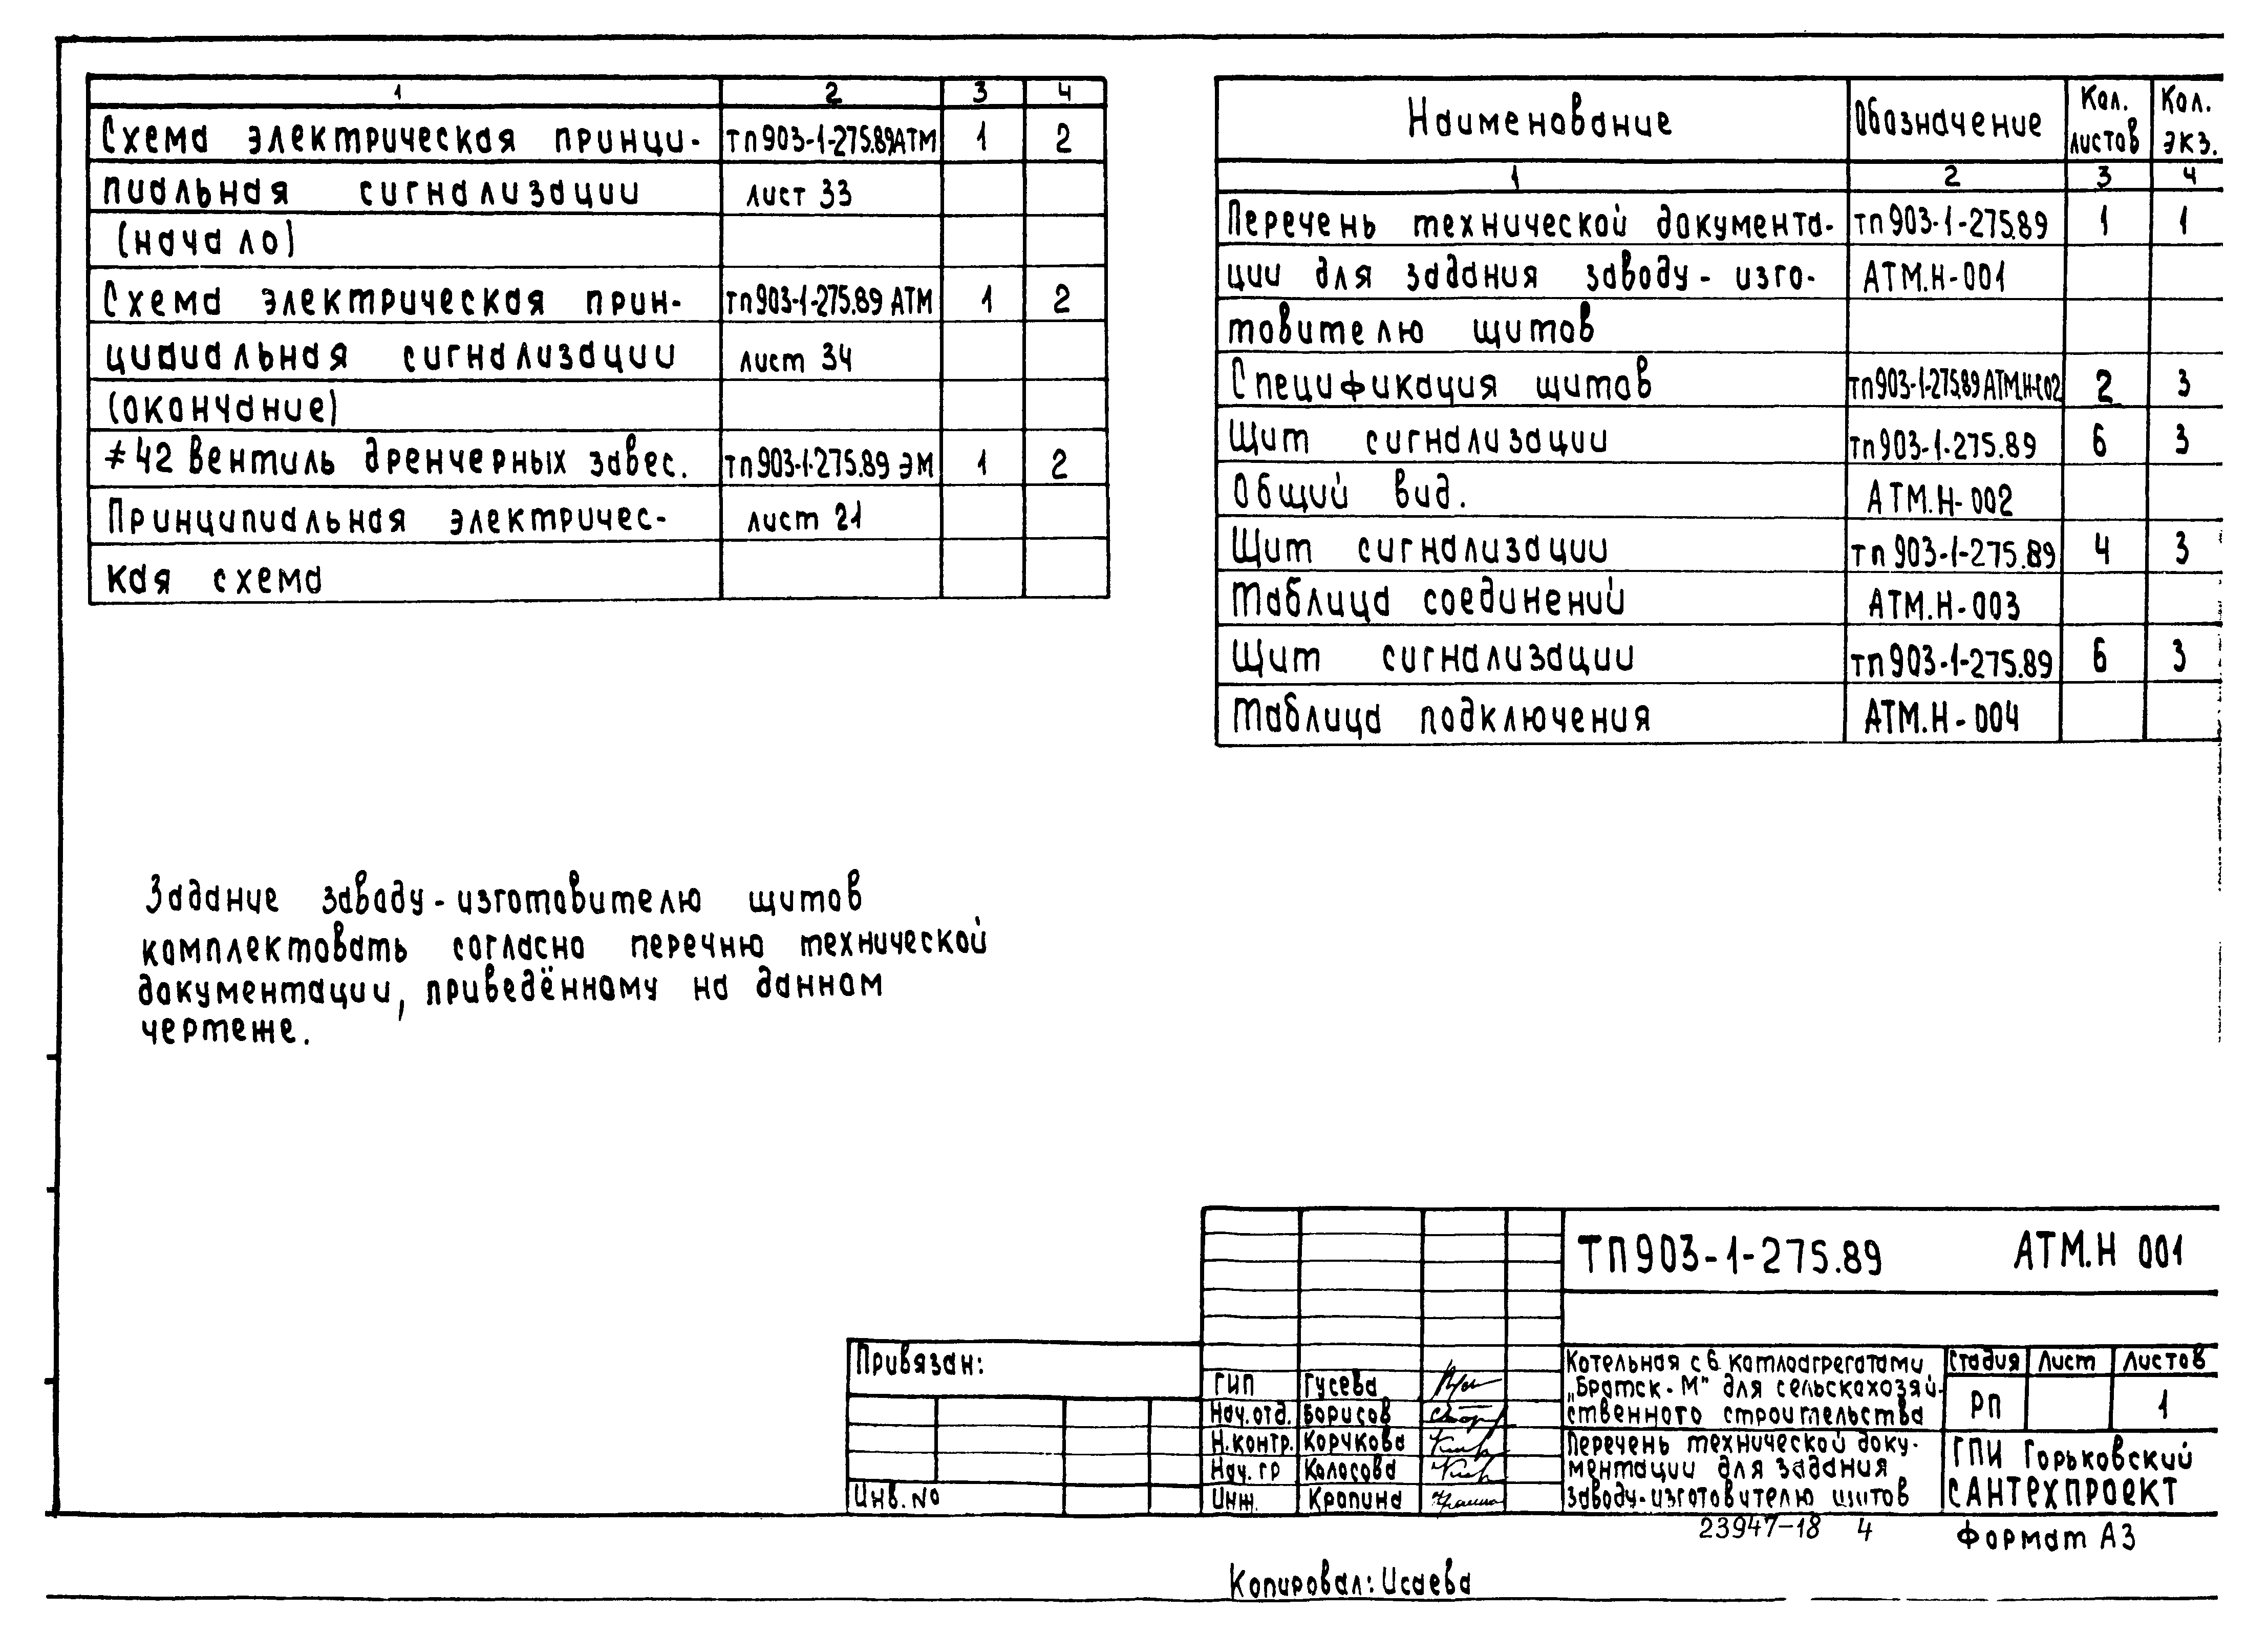 1 2 3 4
Схема электрическая принци- тп903-1-275.89АТМ 1 2
пиальная сигнализации лист 33
(начало)
Схема электрическая прин- тп903-1-275.89 АТМ 1 2
циаиальная сигнализации лист 34
(окончание)
≠42 Вентиль дренчерных завес. тп903-1-275.89 ЭМ 1 2
Принципиальная электричес- лист 21
кая схема
Наименование Обозначение Кол. листов Кол. экз.
1 2 3 4
Перечень технической документа- тп903-1-275.89 1 1
ции для задания заводу-изго- АТМ.Н-001
товителю щитов
Спецификация щитов тп903-1-275.89 АТМ.Н-С02 2 3
Щит сигнализации тп903-1-275.89 6 3
Общий вид. АТМ.Н-002
Щит сигнализации тп903-1-275.89 4 3
Таблица соединений АТМ.Н-003
Щит сигнализации тп903-1-275.89 6 3
Таблица подключения АТМ.Н-004
Задание заводу-изготовителю щитов
комплектовать согласно перечню технической
документации, приведённому на данном
чертеже.
ТП903-1-275.89 АТМ.Н 001
Привязан:
Инв. №
ГИП Гусева
Нач.отд. Борисов
Н.контр. Корчкова
Нач. гр Колосова
Инж. Кропина
Котельная с 6 котлоагрегатами
„Братск-М" для сельскохозяй-
ственного строительства
Стадия Лист Листов
РП 1
Перечень технической доку-
ментации для задания
заводу-изготовителю щитов
ГПИ Горьковский
САНТЕХПРОЕКТ
23947-18 4
Формат А3
Копировал: Исаева